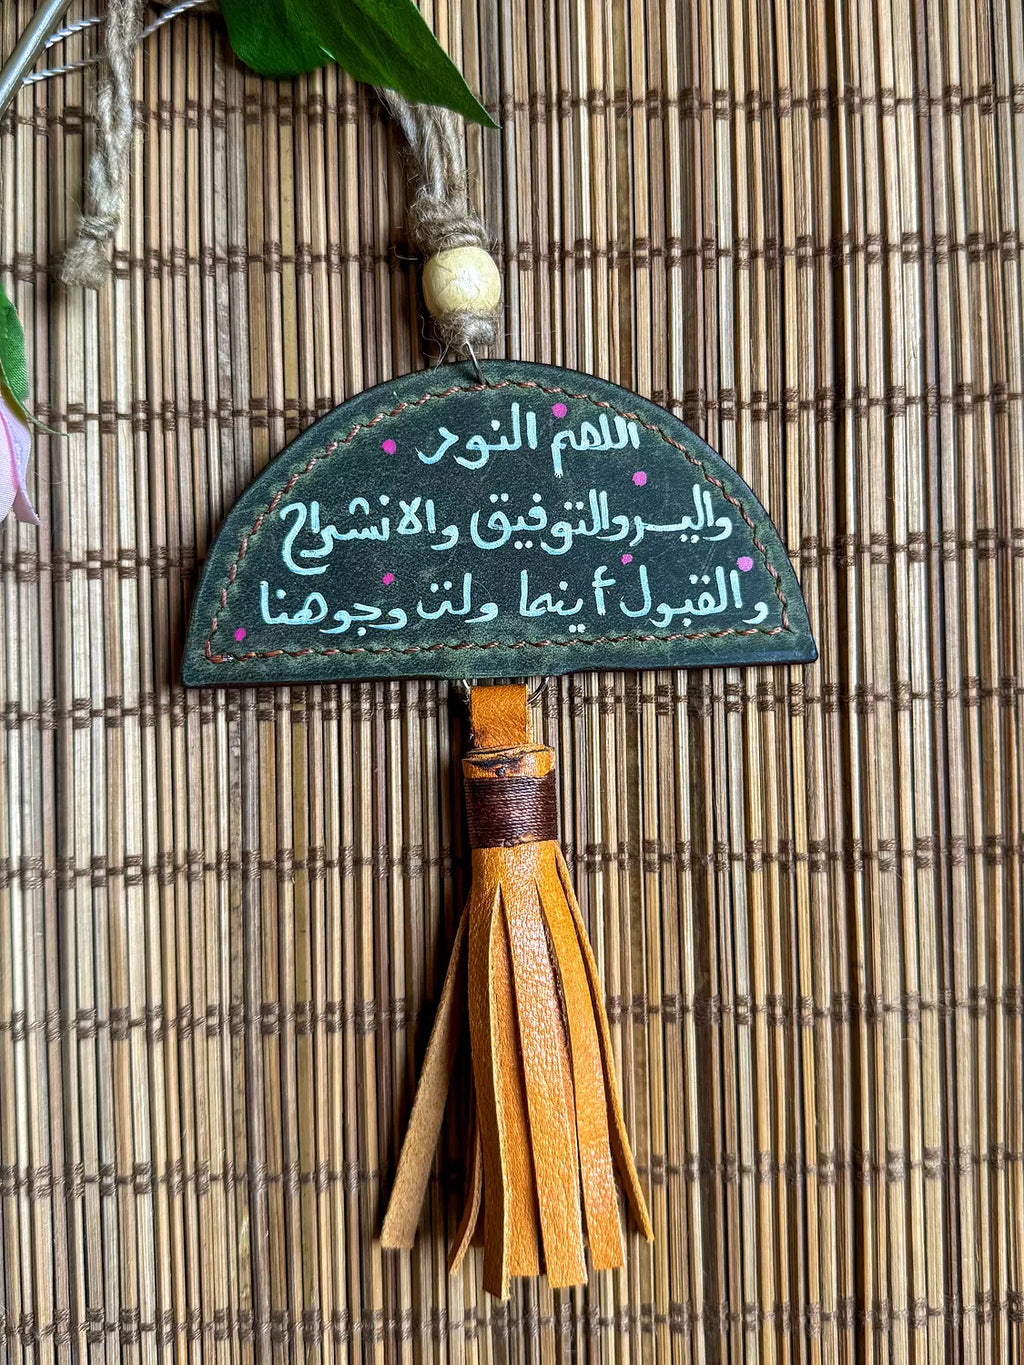 اللهم النور
واليسر والتوفيق والانشراح
والقبول أينما ولت وجوهنا